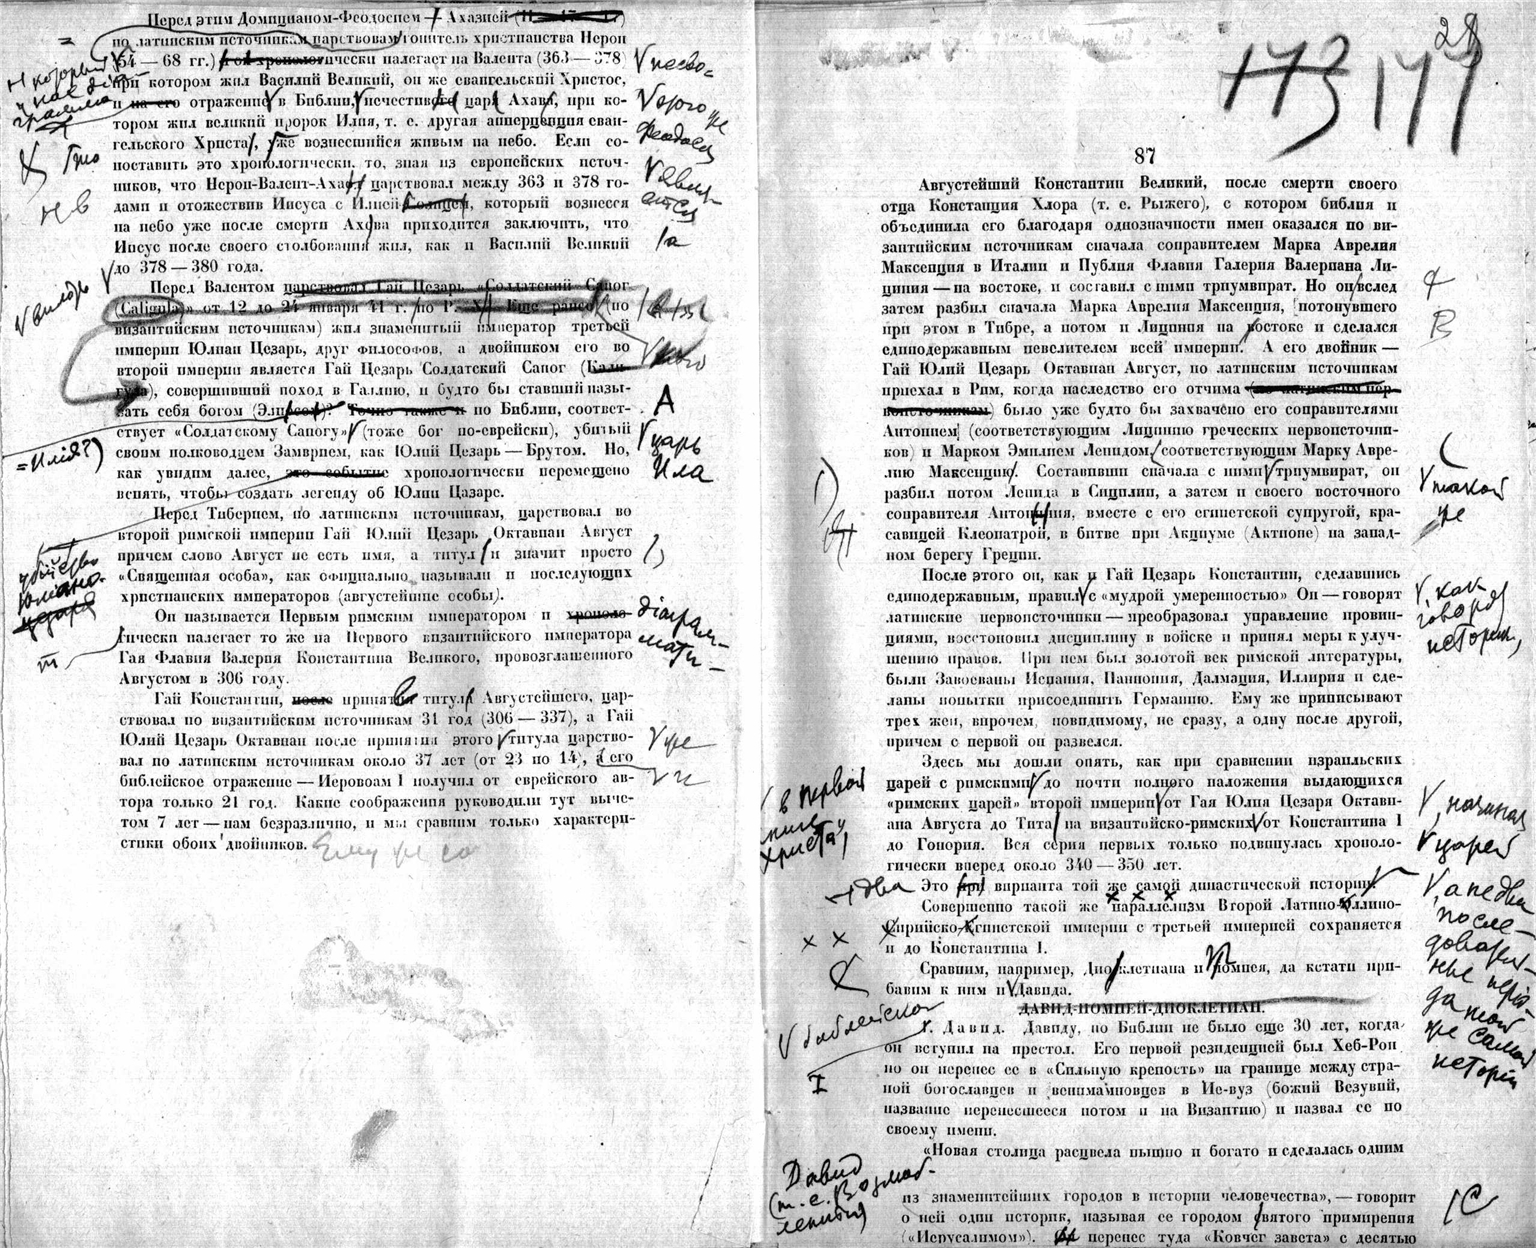 Перед этим Домицианом-Феодосием Ахазией
по латинским источникам царствовал гонитель христианства Нерон
(54 — 68 гг.) хронологически налегает на Валента (363 — 378)
при котором жил Василий Великий, он же евангельский Христос,
и на его отражение в Библии, нечестивого царя Ахава, при ко-
тором жил великий пророк Илия, т. е. другая апперцепция еван-
гельского Христа, уже вознесшийся живым на небо. Если со-
поставить это хронологически, то, зная из европейских источ-
ников, что Нерон-Валент-Ахав царствовал между 363 и 378 го-
дами и отожествив Иисуса с Илией который вознесся
на небо уже после смерти Ахава приходится заключить, что
Иисус после своего столбования жил, как и Василий Великий
до 378 — 380 года.
Перед Валентом царствовал Гай Цезарь «Солдатский Сапог
(Caligula)» от 12 до 24 января 41 г. по Р. Х. Еще ранее (по
византийским источникам) жил знаменитый император третьей
империи Юлиан Цезарь, друг философов, а двойником его во
второй империи является Гай Цезарь Солдатский Сапог (Кали-
гула), совершивший поход в Галлию, и будто бы ставший назы-
вать себя богом Точно также и по Библии, соответ-
ствует «Солдатскому Сапогу» (тоже бог по-еврейски), убитый
своим полководцем Замврием, как Юлий Цезарь — Брутом. Но,
как увидим далее, это событие хронологически перемещено
вспять, чтобы создать легенду об Юлии Цазаре.
Перед Тиберием, по латинским источникам, царствовал во
второй римской империи Гай Юлий Цезарь Октавиан Август
причем слово Август не есть имя, а титул и значит просто
«Священная особа», как официально называли и последующих
христианских императоров (августейшие особы).
Он называется Первым римским императором и хроноло-
гически налегает то же на Первого византийского императора
Гая Флавия Валерия Константина Великого, провозглашенного
Августом в 306 году.
Гай Константин, после принятия титула Августейшего, цар-
ствовал по византийским источникам 31 год (306 — 337), а Гай
Юлий Цезарь Октавиан после принятия этого титула царство-
вал по латинским источникам около 37 лет (от 23 по 14), а его
библейское отражение — Иеровоам I получил от еврейского ав-
тора только 21 год. Какие соображения руководили тут выче-
том 7 лет — нам безразлично, и мы сравним только характери-
стики обоих двойников.
которым
Это
н в
того же
Феодосия
являн-
ается
а
А
царь
Ила
= Илія?)
убійство
Юліано-
цезаря
т
діаграм-
мати-
же
и
Ему же со
28
173 177
87
Августейший Константин Великий, после смерти своего
отца Констанция Хлора (т. е. Рыжего), с котором библия и
объединила его благодаря однозначности имен оказался по ви-
зантийским источникам сначала соправителем Марка Аврелия
Максенция в Италии и Публия Флавия Галерия Валериана Ли-
циния — на востоке, и составил с ними триумвират. Но он вслед
затем разбил сначала Марка Аврелия Максенция, потонувшего
при этом в Тибре, а потом и Лициния на востоке и сделался
единодержавным певелителем всей империи. А его двойник —
Гай Юлий Цезарь Октавиан Август, по латинским источникам
приехал в Рим, когда наследство его отчима (по латинским пер-
воисточникам) было уже будто бы захвачено его соправителями
Антонием (соответствующим Лицинию греческих первоисточни-
ков) и Марком Эмилием Лепидом соответствующим Марку Авре-
лию Максенцию. Составивши сначала с ними триумвират, он
разбил потом Лепида в Сицилии, а затем и своего восточного
соправителя Антониния, вместе с его египетской супругой, кра-
савицей Клеопатрой, в битве при Акциуме (Актионе) на запад-
ном берегу Греции.
После этого он, как и Гай Цезарь Константин, сделавшись
единодержавным, правил с «мудрой умеренностью» Он — говорят
латинские первоисточники — преобразовал управление провин-
циями, восстоновил дисциплину в войске и принял меры к улуч-
шению нравов. При нем был золотой век римской литературы,
были Завоеваны Испания, Паннония, Далмация, Иллирия и сде-
ланы попытки присоединить Германию. Ему же приписывают
трех жен, впрочем, повидимому, не сразу, а одну после другой,
причем с первой он развелся.
Здесь мы дошли опять, как при сравнении израильских
царей с римскими до почти полного наложения выдающихся
«римских царей» второй империи от Гая Юлия Цезаря Октави-
ана Августа до Тита на византийско-римских от Константина I
до Гонория. Вся серия первых только подвинулась хроноло-
гически вперед около 340 — 350 лет.
Это три варианта той же самой династической истории.
Совершенно такой же параллелизм Второй Латино-Эллино-
Сирийско-Египетской империи с третьей империей сохраняется
и до Константина I.
Сравним, например, Диоклетиана и Помпея, да кстати при-
бавим к ним и Давида.
ДАВИД-ПОМПЕЙ-ДИОКЛЕТИАН.
г. Давид. Давиду, по Библии не было еще 30 лет, когда
он вступил на престол. Его первой резиденцией был Хеб-Рон
но он перенес ее в «Сильную крепость» на границе между стра-
ной богославцев и вениманновцев в Ие-вуз (божий Везувий,
название перенесшееся потом и на Византию) и назвал ее по
своему имени.
«Новая столица расцвела пышно и богато и сделалась одним
из знаменитейших городов в истории человечества», — говорит
о ней один историк, называя ее городом святого примирения
(«Иерусалимом»). перенес туда «Ковчег завета» с десятью
В
такой
же
, как
говорят
историки,
в первой
книге
Христа,
, начиная
царей
два
, а не два
после-
довател-
ные періо-
да той
же самой
исторіи
библейской
I
Давид
(т. е. Возлюб-
ленный)
С